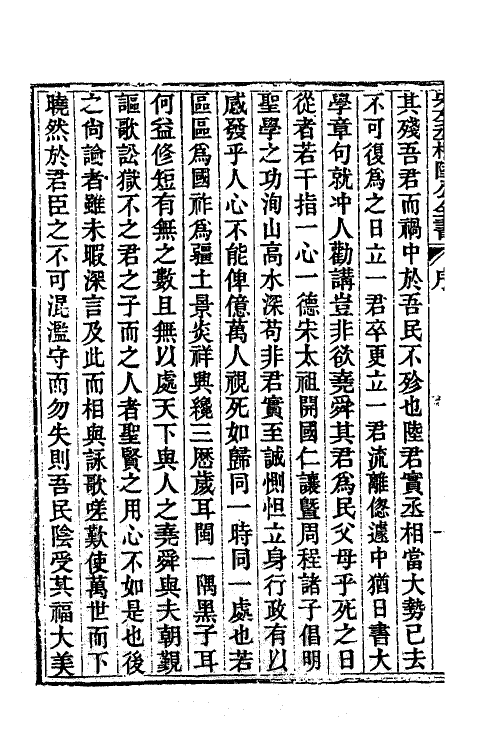 其殘吾君而禍中於吾民不殄也陸君實丞相當大勢已去
不可復為之日立一君卒更立一君流離偬遽中猶日書大
學章句就冲人勸講豈非欲堯舜其君為民父母乎死之日
從者若干指一心一德宋太祖開國仁讓暨周程諸子倡明
聖學之功洵山高水深苟非君實至誠惻怛立身行政有以
感發乎人心不能俾億萬人視死如歸同一時同一處也若
區區為國祚為疆土景炎祥興纔三歷歲耳閩一隅黑子耳
何益修短有無之數且無以處天下與人之堯舜與夫朝覲
謳歌訟獄不之君之子而之人者聖賢之用心不如是也後
之尙論者雖未暇深言及此而相與詠歌嗟歎使萬世而下
曉然於君臣之不可混濫守而勿失則吾民陰受其福大美